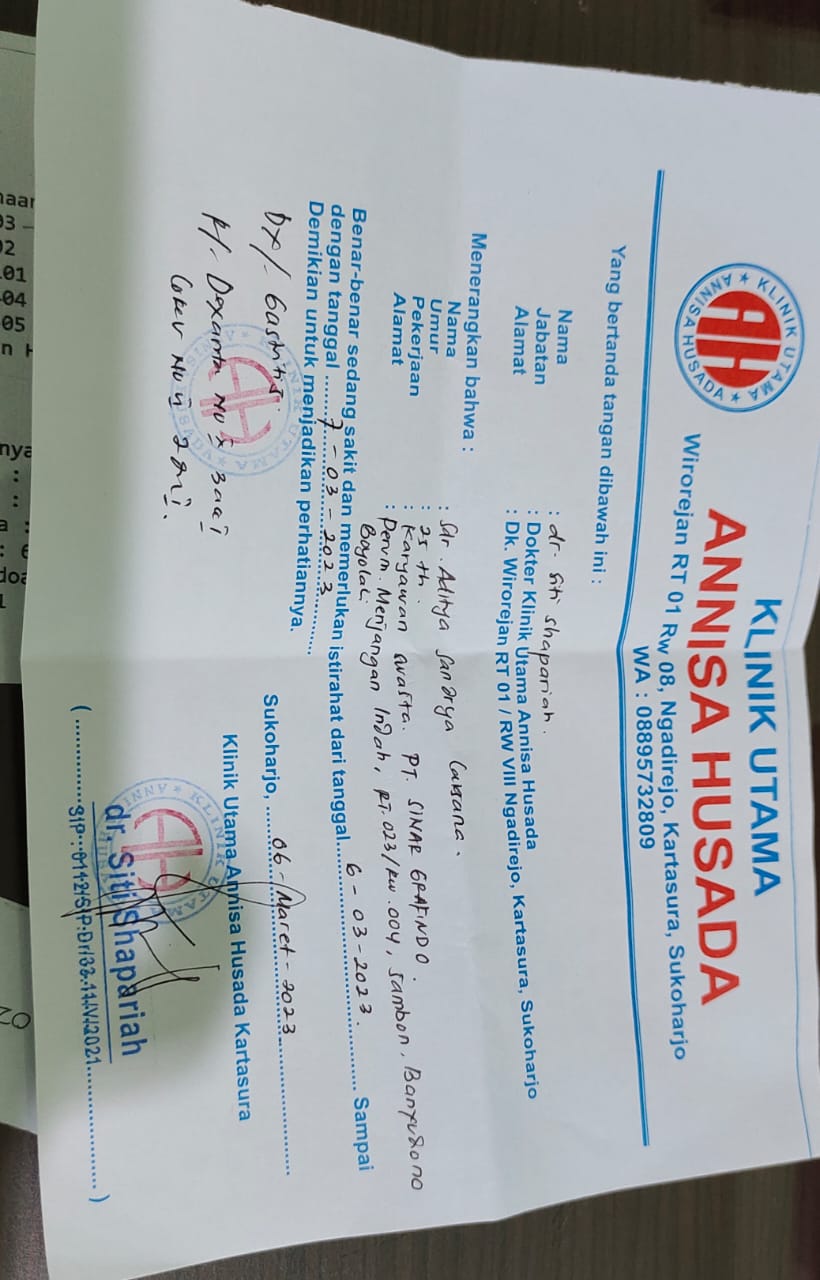 KLINIK UTAMA
ANNISA HUSADA
Wirorejan RT 01 Rw 08, Ngadirejo, Kartasura, Sukoharjo
WA : 08895732809
KLINIK UTAMA
ANNISA HUSADA
AH
Yang bertanda tangan dibawah ini :
Nama : dr. Siti Shapariah.
Jabatan : Dokter Klinik Utama Annisa Husada
Alamat : Dk. Wirorejan RT 01 / RW VIII Ngadirejo, Kartasura, Sukoharjo
Menerangkan bahwa :
Nama : Sdr. Aditya Sandrya
Umur : 25 th.
Pekerjaan : Karyawan swasta. PT. SINAR GRAFINDO.
Alamat : Perum. Menjangan Indah, RT.023/RW.004, Sambon, Banyudono
Boyolali
Benar-benar sedang sakit dan memerlukan istirahat dari tanggal 6 - 03 - 2023. Sampai
dengan tanggal 7 - 03 - 2023
Demikian untuk menjadikan perhatiannya.
Sukoharjo, 06 - Maret - 2023
Klinik Utama Annisa Husada Kartasura
DX/.
KLINIK UTAMA
ANNISA HUSADA
AH
dr. Siti Shapariah